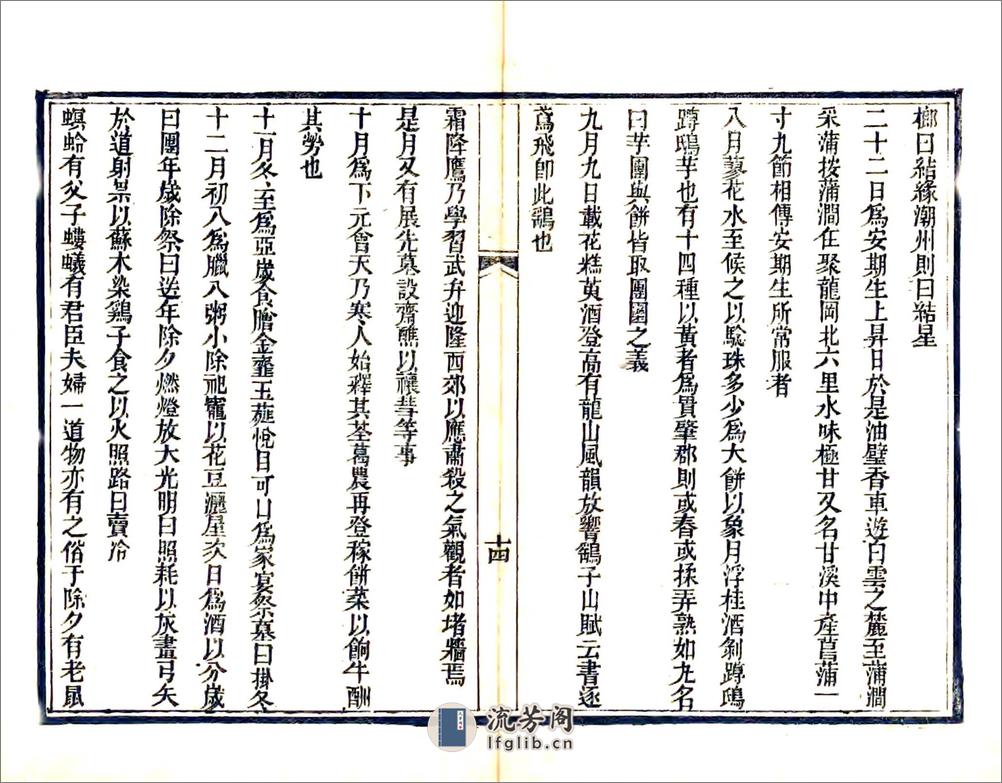 榔曰結緣潮州則曰結星
二十二日為安期生上昇日於是油壁香車遊白雲之麓至蒲澗
采蒲按蒲澗在聚龍岡北六里水味極甘又名甘溪中產菖蒲一
寸九節相傳安期生所常服者
八月蓼花水至候之以驗珠多少為大餅以象月浮桂酒剝蹲鴟
蹲鴟芋也有十四種以黃者為貴肇郡則或舂或揉弄熟如丸名
曰芋團與餅皆取團圞之義
九月九日載花糕萸酒登高有龍山風韻放響鷂子山賦云書逐
鳶飛卽此鷂也
十四
霜降鷹乃學習武弁迎隆西郊以應肅殺之氣觀者如堵牆焉
是月又有展先墓設齋醮以禳彗等事
十月為下元會天乃寒人始釋其荃葛農再登稼餅菜以餉牛酬
其勞也
十一月冬至為亞歲食膾金虀玉薤悅目可口為家宴祭墓曰掛冬
十二月初八為臘八粥小除祀竈以花豆灑屋次日為酒以分歲
曰團年歲除祭曰送年除夕燃燈放大光明曰照耗以灰畫弓矢
於道射祟以蘇木染鷄子食之以火照路曰賣冷
螟蛉有父子螻蟻有君臣夫婦一道物亦有之俗于除夕有老鼠
流芳阁
lfglib.cn